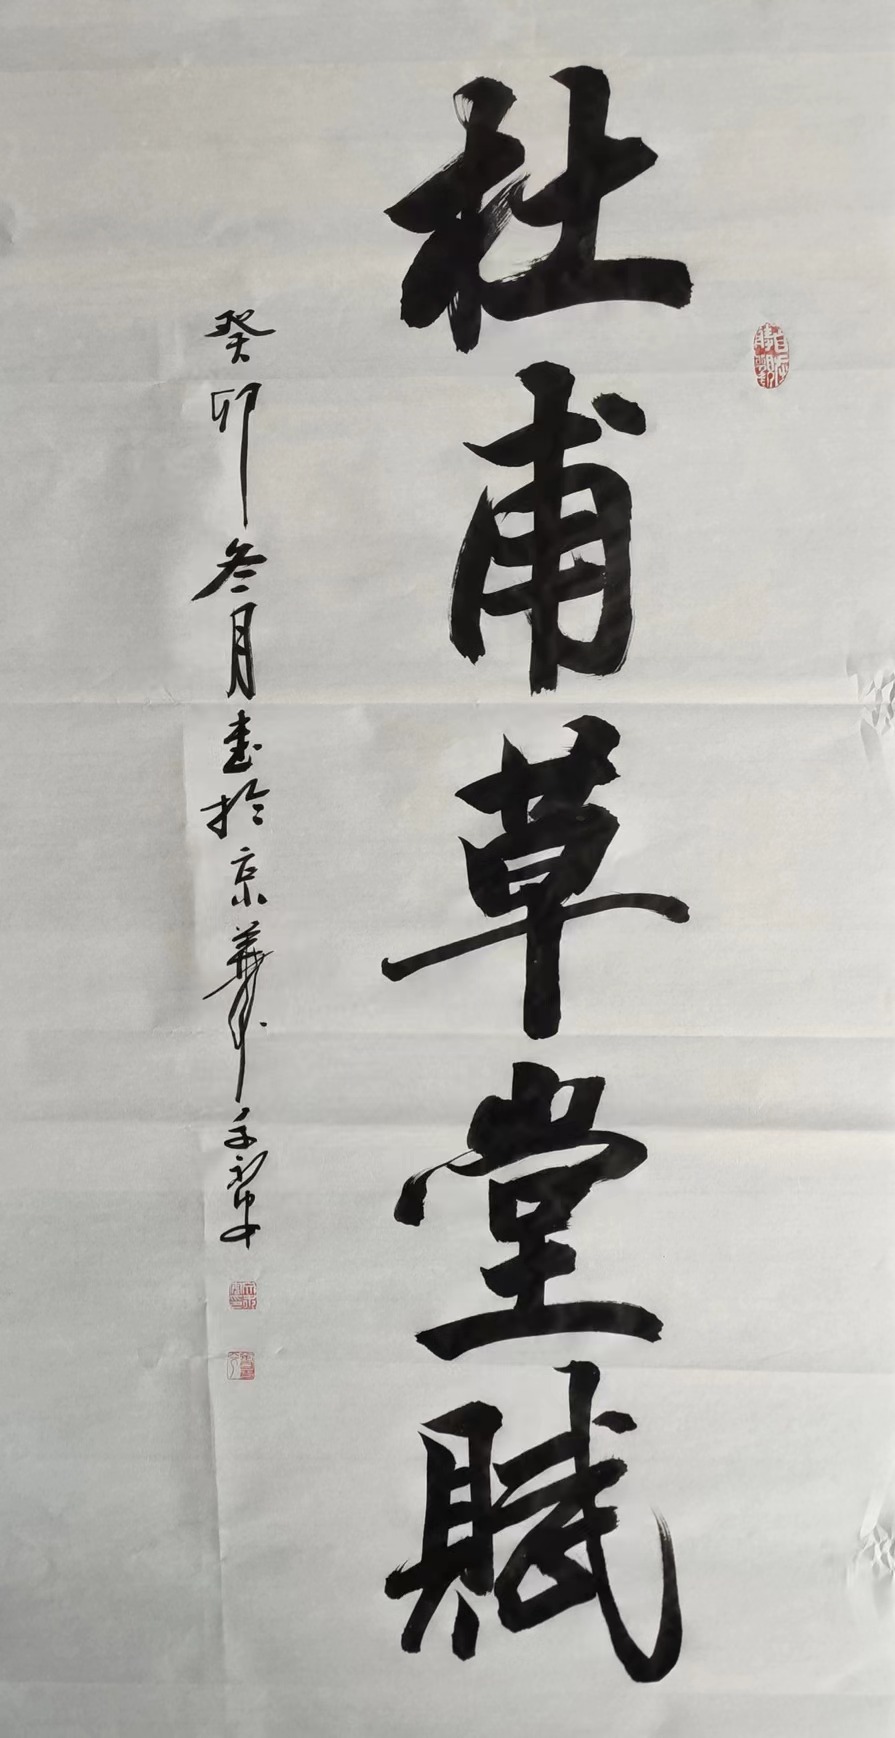 杜甫草堂賦
癸卯冬月書於京華